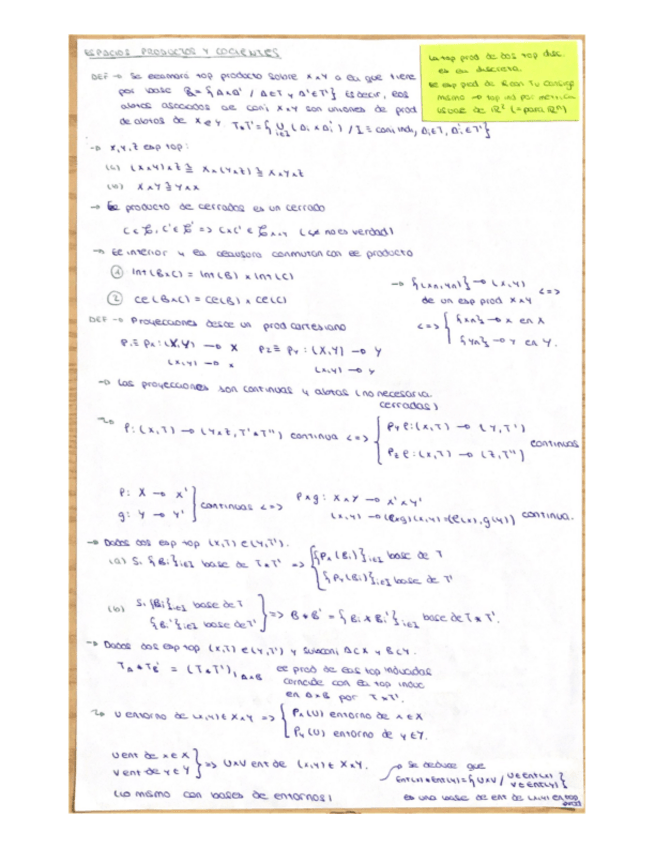 ESPACIOS PRODUCTOS Y COCIENTES
La top prod de dos top disc.
es la discreta.
El esp prod de R con Tu consigo
mismo → top ind por métrica
usual de R² (= para Rⁿ)
DEF → Se llamará top producto sobre X×Y a la que tiene
por base B = { A×A' / A∈T y A'∈T'} Es decir, los
abtos asociados al conj X×Y son uniones de prod
de abtos de X e Y T*T' = { ∪ (Ai × Ai') / I ≡ conj ind, Ai∈T, Ai'∈T'}
i∈I
→ X,Y,Z esp top:
(a) (X×Y)×Z ≅ X×(Y×Z) ≅ X×Y×Z
(b) X×Y ≅ Y×X
→ El producto de cerrados es un cerrado
C∈ζ, C'∈ζ' => C×C' ∈ ζ X×Y (⇍ no es verdad)
→ El interior y la clausura conmutan con el producto
① Int(B×C) = Int(B) × Int(C)
② Cl(B×C) = Cl(B) × Cl(C)
→ {(xn,yn)} → (x,y) <=>
de un esp prod X×Y
<=> { {xn} → x en X
{yn} → y en Y.
DEF → Proyecciones desde un prod cartesiano
P1 ≡ Px : (X,Y) → X P2 ≡ Py : (X,Y) → Y
(x,y) → x (x,y) → y
→ Las proyecciones son continuas y abtas (no necesaria.
cerradas)
f: (X,T) → (Y×Z, T'*T'') continua <=> { Py f: (X,T) → (Y,T')
Pz f: (X,T) → (Z,T'') continuas
f: X → X'
g: Y → Y' } continuas <=> f×g: X×Y → X'×Y'
(x,y) → (f×g)(x,y)=(f(x),g(y)) continua.
→ Dados dos esp top (X,T) e (Y,T').
(a) Si {Bi}i∈I base de T*T' => { {Px(Bi)}i∈I base de T
{Py(Bi)}i∈I base de T'
(b) Si {Bi}i∈I base de T
{Bi'}i∈I base de T' } => B*B' = {Bi×Bi'}i∈I base de T*T'.
→ Dados dos esp top (X,T) e (Y,T') y subconj A⊂X y B⊂Y.
T A * T B' = (T*T') | A×B el prod de las top inducidas
coincide con la top induc
en A×B por T*T'.
U entorno de (x,y)∈X×Y => { Px(U) entorno de x∈X
Py(U) entorno de y∈Y.
U ent de x∈X
V ent de y∈Y } => U×V ent de (x,y)∈X×Y.
(lo mismo con bases de entornos)
→ Se deduce que
Ent(x)*Ent(y)={U×V / U∈Ent(x) V∈Ent(y)}
es una base de ent de (x,y) en top
prod